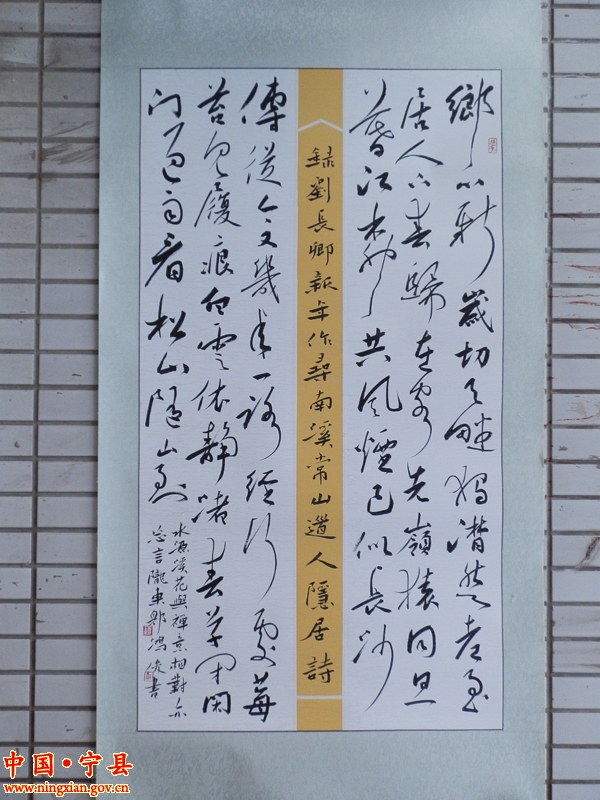 鄉心新歲切天畔獨潸然老至
居人下春歸在客先嶺猿同旦
暮江柳共風煙已似長沙
録劉長卿新年作尋南溪常山道人隱居詩
傅從今又幾年一路經行處莓
苔見履痕白雲依靜渚春草閉閑
门過雨看松色隨山到
水源溪花與禪意相對亦
忘言隴東鴻書
中国·宁县
www.ningxian.gov.cn